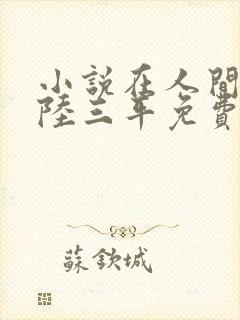 小說在人間
陸三年免費
蘇欽城